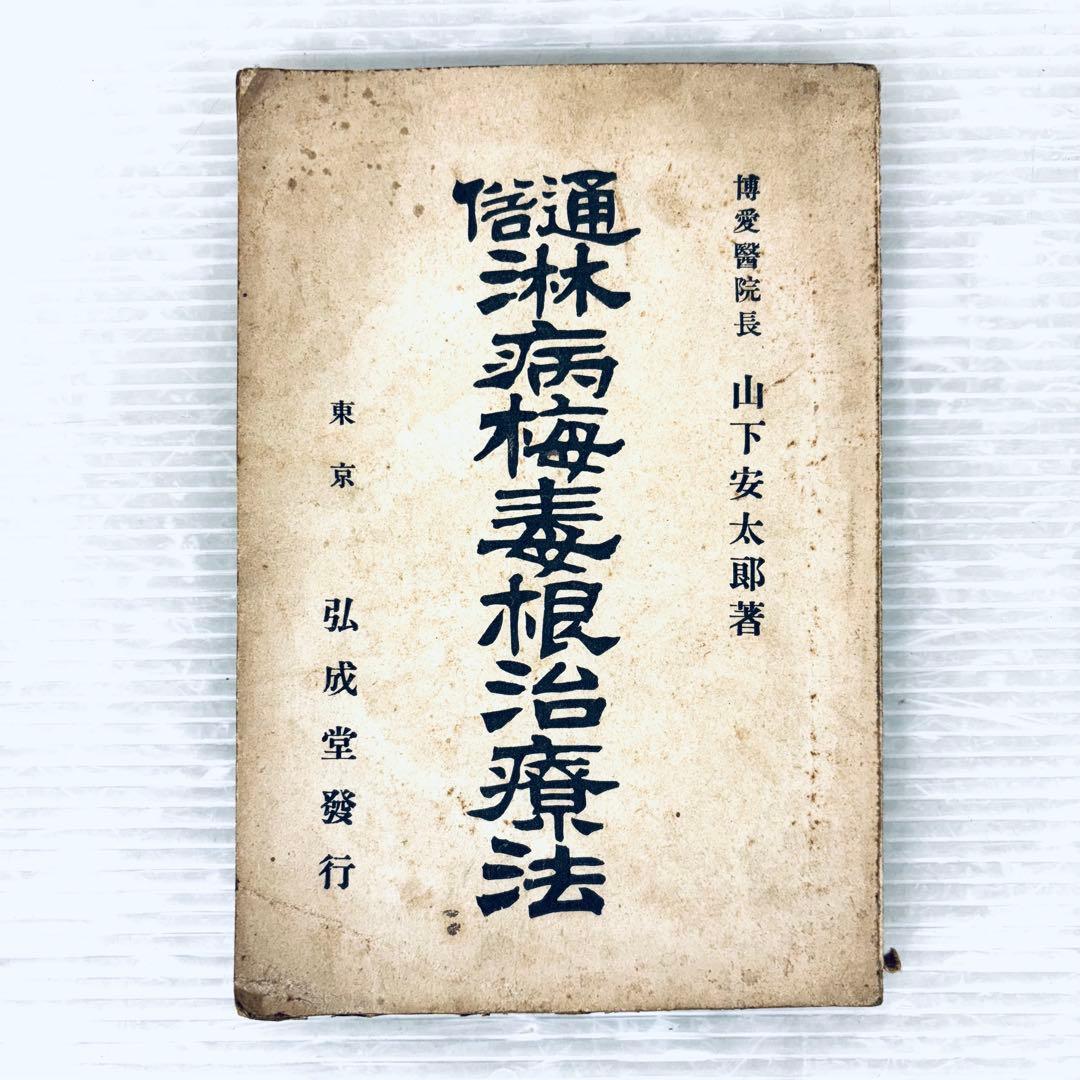 博愛醫院長　山下安太郎著
通俗淋病梅毒根治療法
東京　弘成堂發行